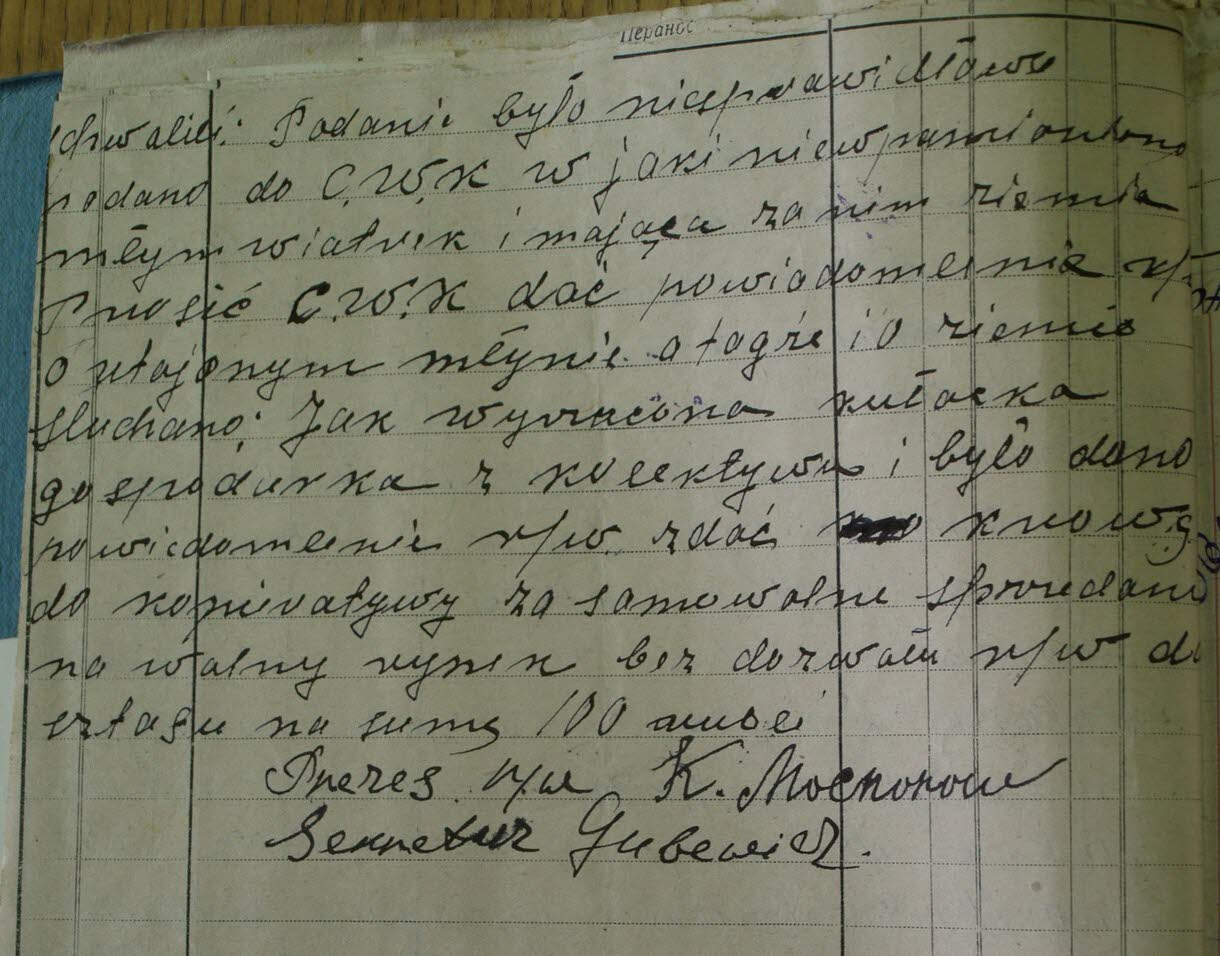 Перанос
chwalili: Podanie było niesprawidławe
podano do C.W.K w jaki niewpamiontono
młyn wiatrek i mająca za nim ziemia
Prosić C.W.K dać powiadomlenie r/w
o utajonym młynie a tagże i o ziemie
Sluchano: Jak wyrucona kułacka
gospodarka z kolektywu i było dano
powiedomlenie r/w zdać krowę
do kopieratywy za samowolne sprzedanie
na wolny rynek bez dozwołu r/w do
sztasu na sumę 100 rubli
Prezes r/w K. Mochorow
Sekretarz